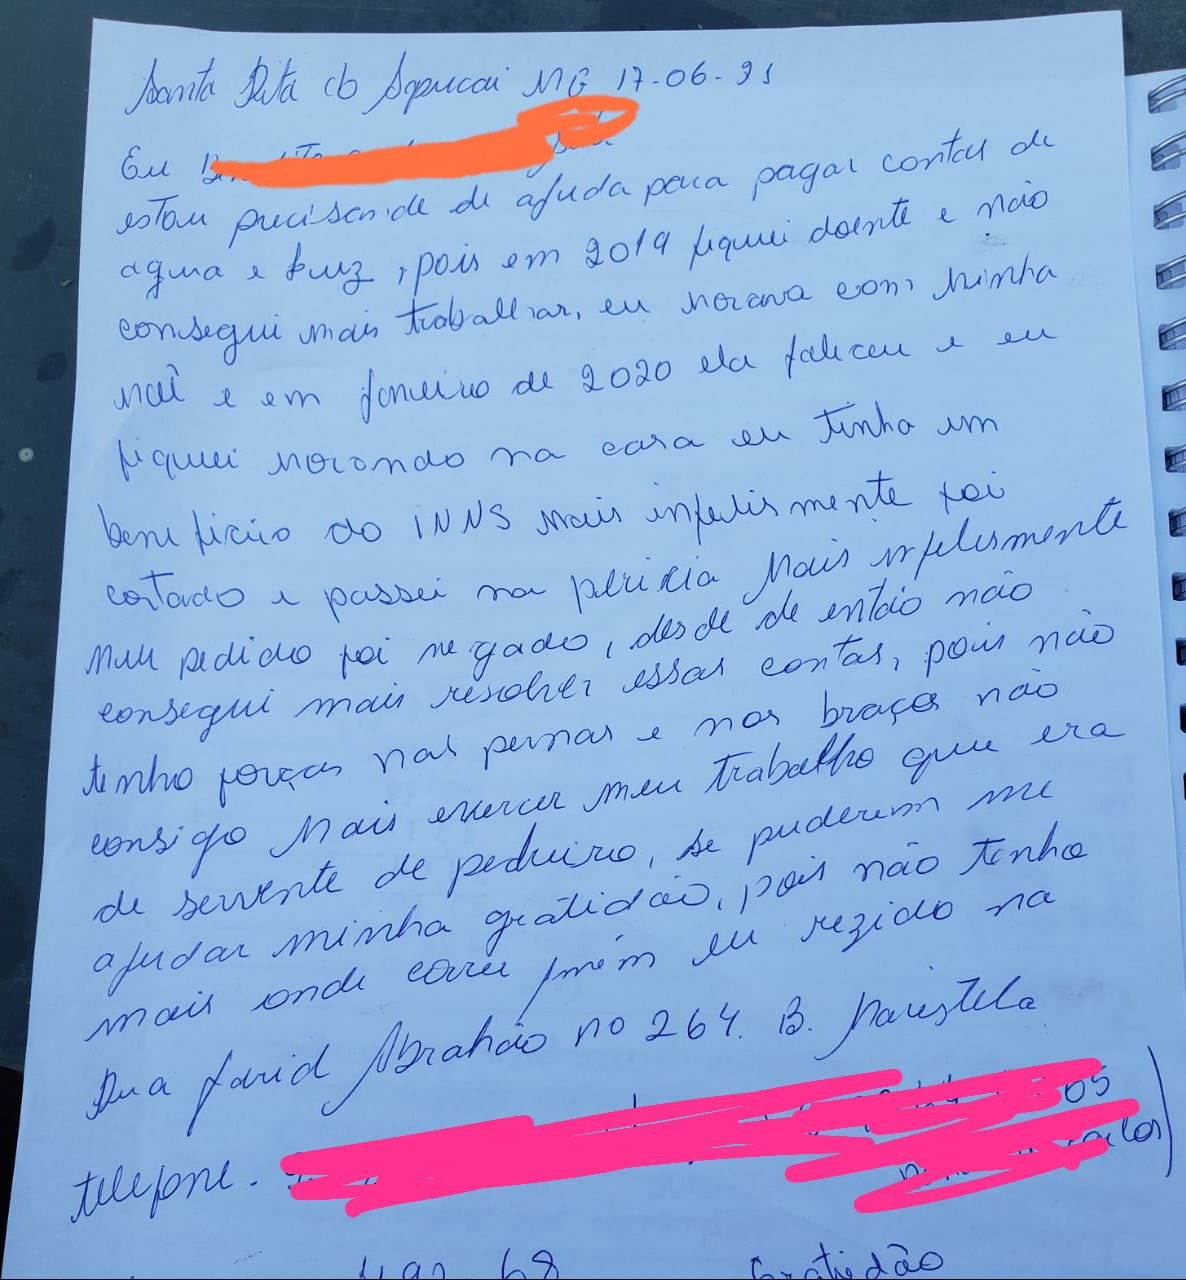 Santa Rita do Sapucai MG 17-06-21
Eu
estou precisando de ajuda para pagar contas de
agua e luz, pois em 2019 fiquei doente e não
consegui mais trabalhar, eu morava com minha
mãe e em janeiro de 2020 ela faliceu e eu
fiquei morando na casa eu tinha um
beneficio do iNNS mais infelismente foi
cortado e passei na pericia mais infelismente
meu pedido foi negado, desde de então não
consegui mais resolver essas contas, pois não
tenho forças nas pernas e nos braços não
consigo mais exercer meu trabalho que era
de servente de pedreiro, se puderem me
ajudar minha gratidão, pois não tenho
mais onde correr eu rezido na
Rua farid Abrahão no 264. B. Maristela
telefone.
05
68 Gratidão